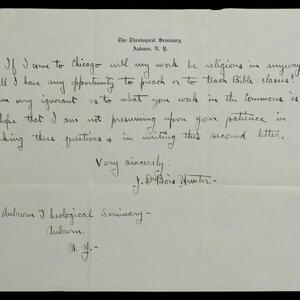 The Theological Seminary,
Auburn, N. Y.
If I come to Chicago will my work be religious in anyway
ll I have any opportunity to preach or to teach Bible-classes?
am very ignorant as to what your work in the Commons is
hope that I am not presuming upon your patience in
king these questions & in writing this second letter.
Very sincerely.
J. DuBois Hunter-
Auburn Theological Seminary-
Auburn.
N. Y.-